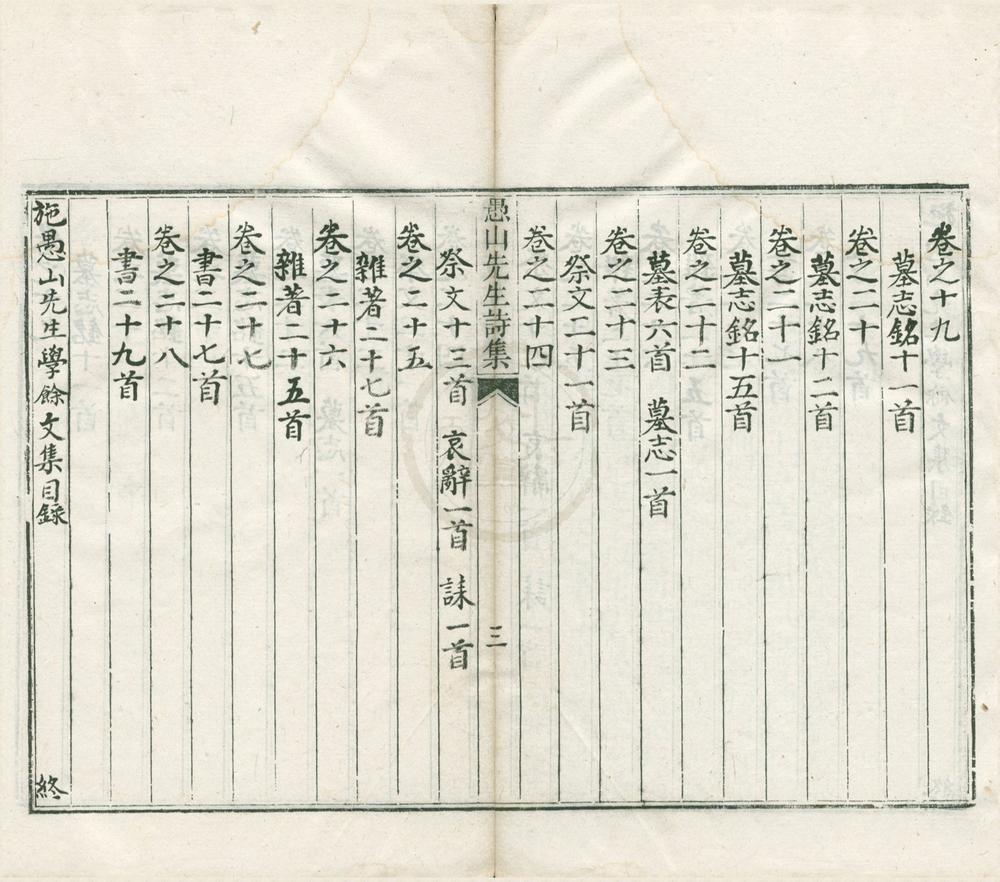 卷之十九
墓志銘十一首
卷之二十
墓志銘十二首
卷之二十一
墓志銘十五首
卷之二十二
墓表六首　墓志一首
卷之二十三
祭文二十一首
卷之二十四
愚山先生詩集　三
祭文十三首　哀辭一首　誄一首
卷之二十五
雜著二十七首
卷之二十六
雜著二十五首
卷之二十七
書二十七首
卷之二十八
書二十九首
施愚山先生學餘文集目錄　終